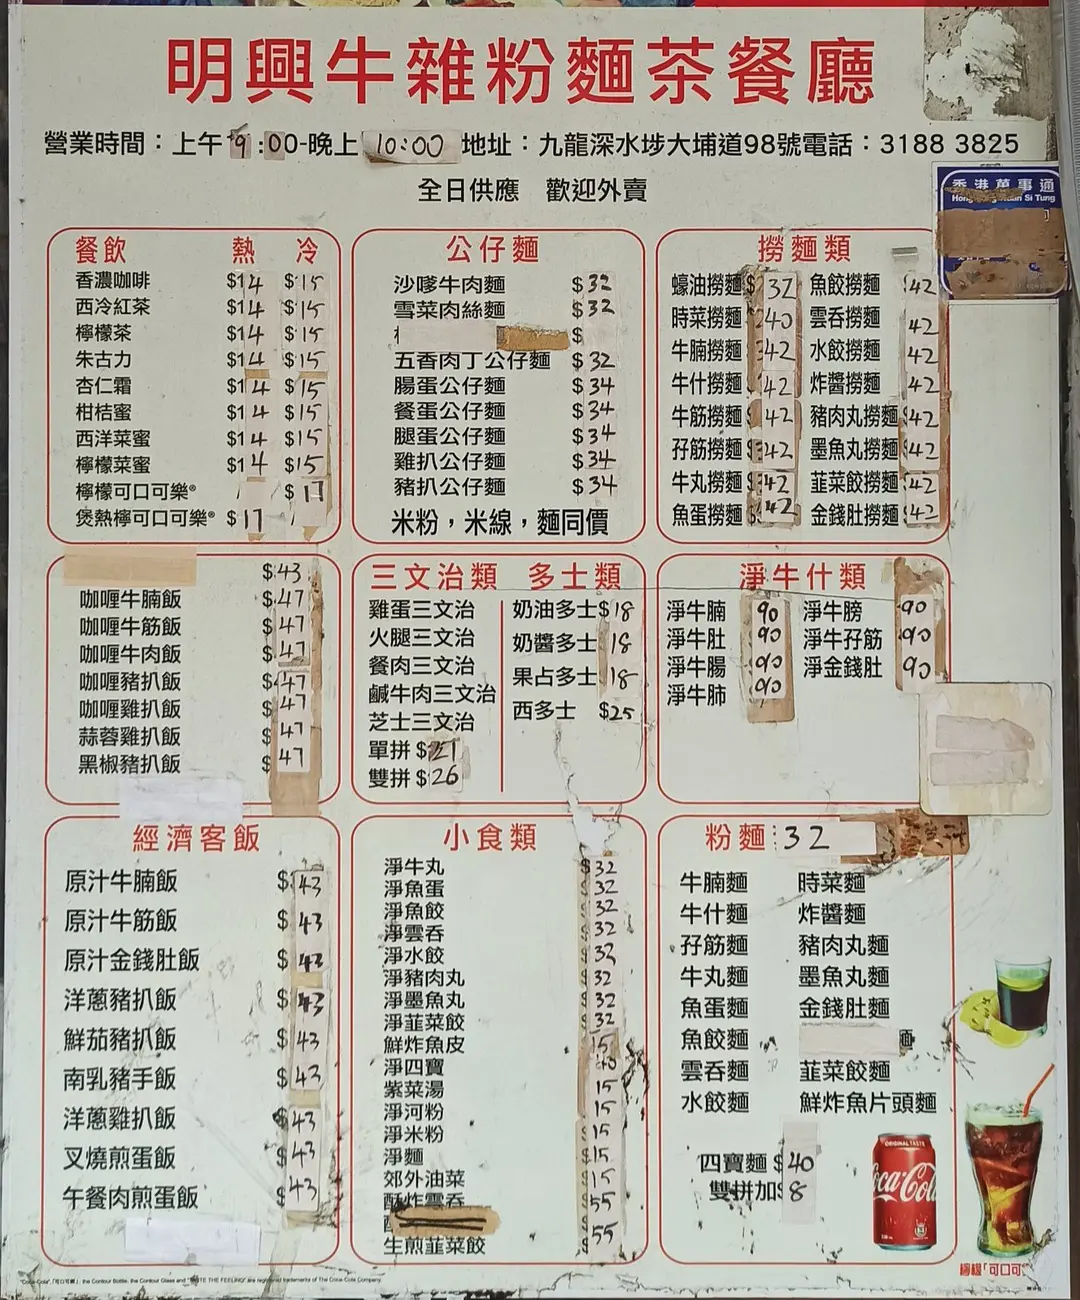 明興牛雜粉麵茶餐廳
營業時間：上午9:00-晚上10:00 地址：九龍深水埗大埔道98號電話：3188 3825
全日供應 歡迎外賣
香港萬事通
餐飲 熱 冷
香濃咖啡 $14 $15
西冷紅茶 $14 $15
檸檬茶 $14 $15
朱古力 $14 $15
杏仁霜 $14 $15
柑桔蜜 $14 $15
西洋菜蜜 $14 $15
檸檬菜蜜 $14 $15
檸檬可口可樂® / $17
煲熱檸可口可樂® $17 /
公仔麵
沙嗲牛肉麵 $32
雪菜肉絲麵 $32
$
五香肉丁公仔麵 $32
腸蛋公仔麵 $34
餐蛋公仔麵 $34
腿蛋公仔麵 $34
雞扒公仔麵 $34
豬扒公仔麵 $34
米粉，米線，麵同價
撈麵類
蠔油撈麵 $32 魚餃撈麵 42
時菜撈麵 40 雲吞撈麵 42
牛腩撈麵 42 水餃撈麵 42
牛什撈麵 42 炸醬撈麵 42
牛筋撈麵 42 豬肉丸撈麵 42
孖筋撈麵 42 墨魚丸撈麵 42
牛丸撈麵 42 韮菜餃撈麵 42
魚蛋撈麵 42 金錢肚撈麵 42
$43
咖喱牛腩飯 $47
咖喱牛筋飯 $47
咖喱牛肉飯 $47
咖喱豬扒飯 $47
咖喱雞扒飯 $47
蒜蓉雞扒飯 $47
黑椒豬扒飯 $47
三文治類
雞蛋三文治
火腿三文治
餐肉三文治
鹹牛肉三文治
芝士三文治
單拼 $21
雙拼 $26
多士類
奶油多士 $18
奶醬多士 18
果占多士 18
西多士 $25
淨牛什類
淨牛腩 90 淨牛膀 90
淨牛肚 90 淨牛孖筋 90
淨牛腸 90 淨金錢肚 90
淨牛肺 90
經濟客飯
原汁牛腩飯 $43
原汁牛筋飯 $43
原汁金錢肚飯 $43
洋蔥豬扒飯 $43
鮮茄豬扒飯 $43
南乳豬手飯 $43
洋蔥雞扒飯 $43
叉燒煎蛋飯 $43
午餐肉煎蛋飯 $43
小食類
淨牛丸 32
淨魚蛋 32
淨魚餃 32
淨雲吞 32
淨水餃 32
淨豬肉丸 32
淨墨魚丸 32
淨韮菜餃 32
鮮炸魚皮 15
淨四寶 40
紫菜湯 15
淨河粉 15
淨米粉 15
淨麵 $15
郊外油菜 15
酥炸雲吞 55
生煎韮菜餃 55
粉麵:32
牛腩麵 時菜麵
牛什麵 炸醬麵
孖筋麵 豬肉丸麵
牛丸麵 墨魚丸麵
魚蛋麵 金錢肚麵
魚餃麵 麵
雲吞麵 韮菜餃麵
水餃麵 鮮炸魚片頭麵
四寶麵 $40
雙拼加$8
ORIGINAL TASTE
Coca-Cola
檸檬「可口可
"Coca-Cola",「可口可樂」, the Contour Bottle, the Contour Glass and "TASTE THE FEELING" are registered trademarks of The Coca-Cola Company.